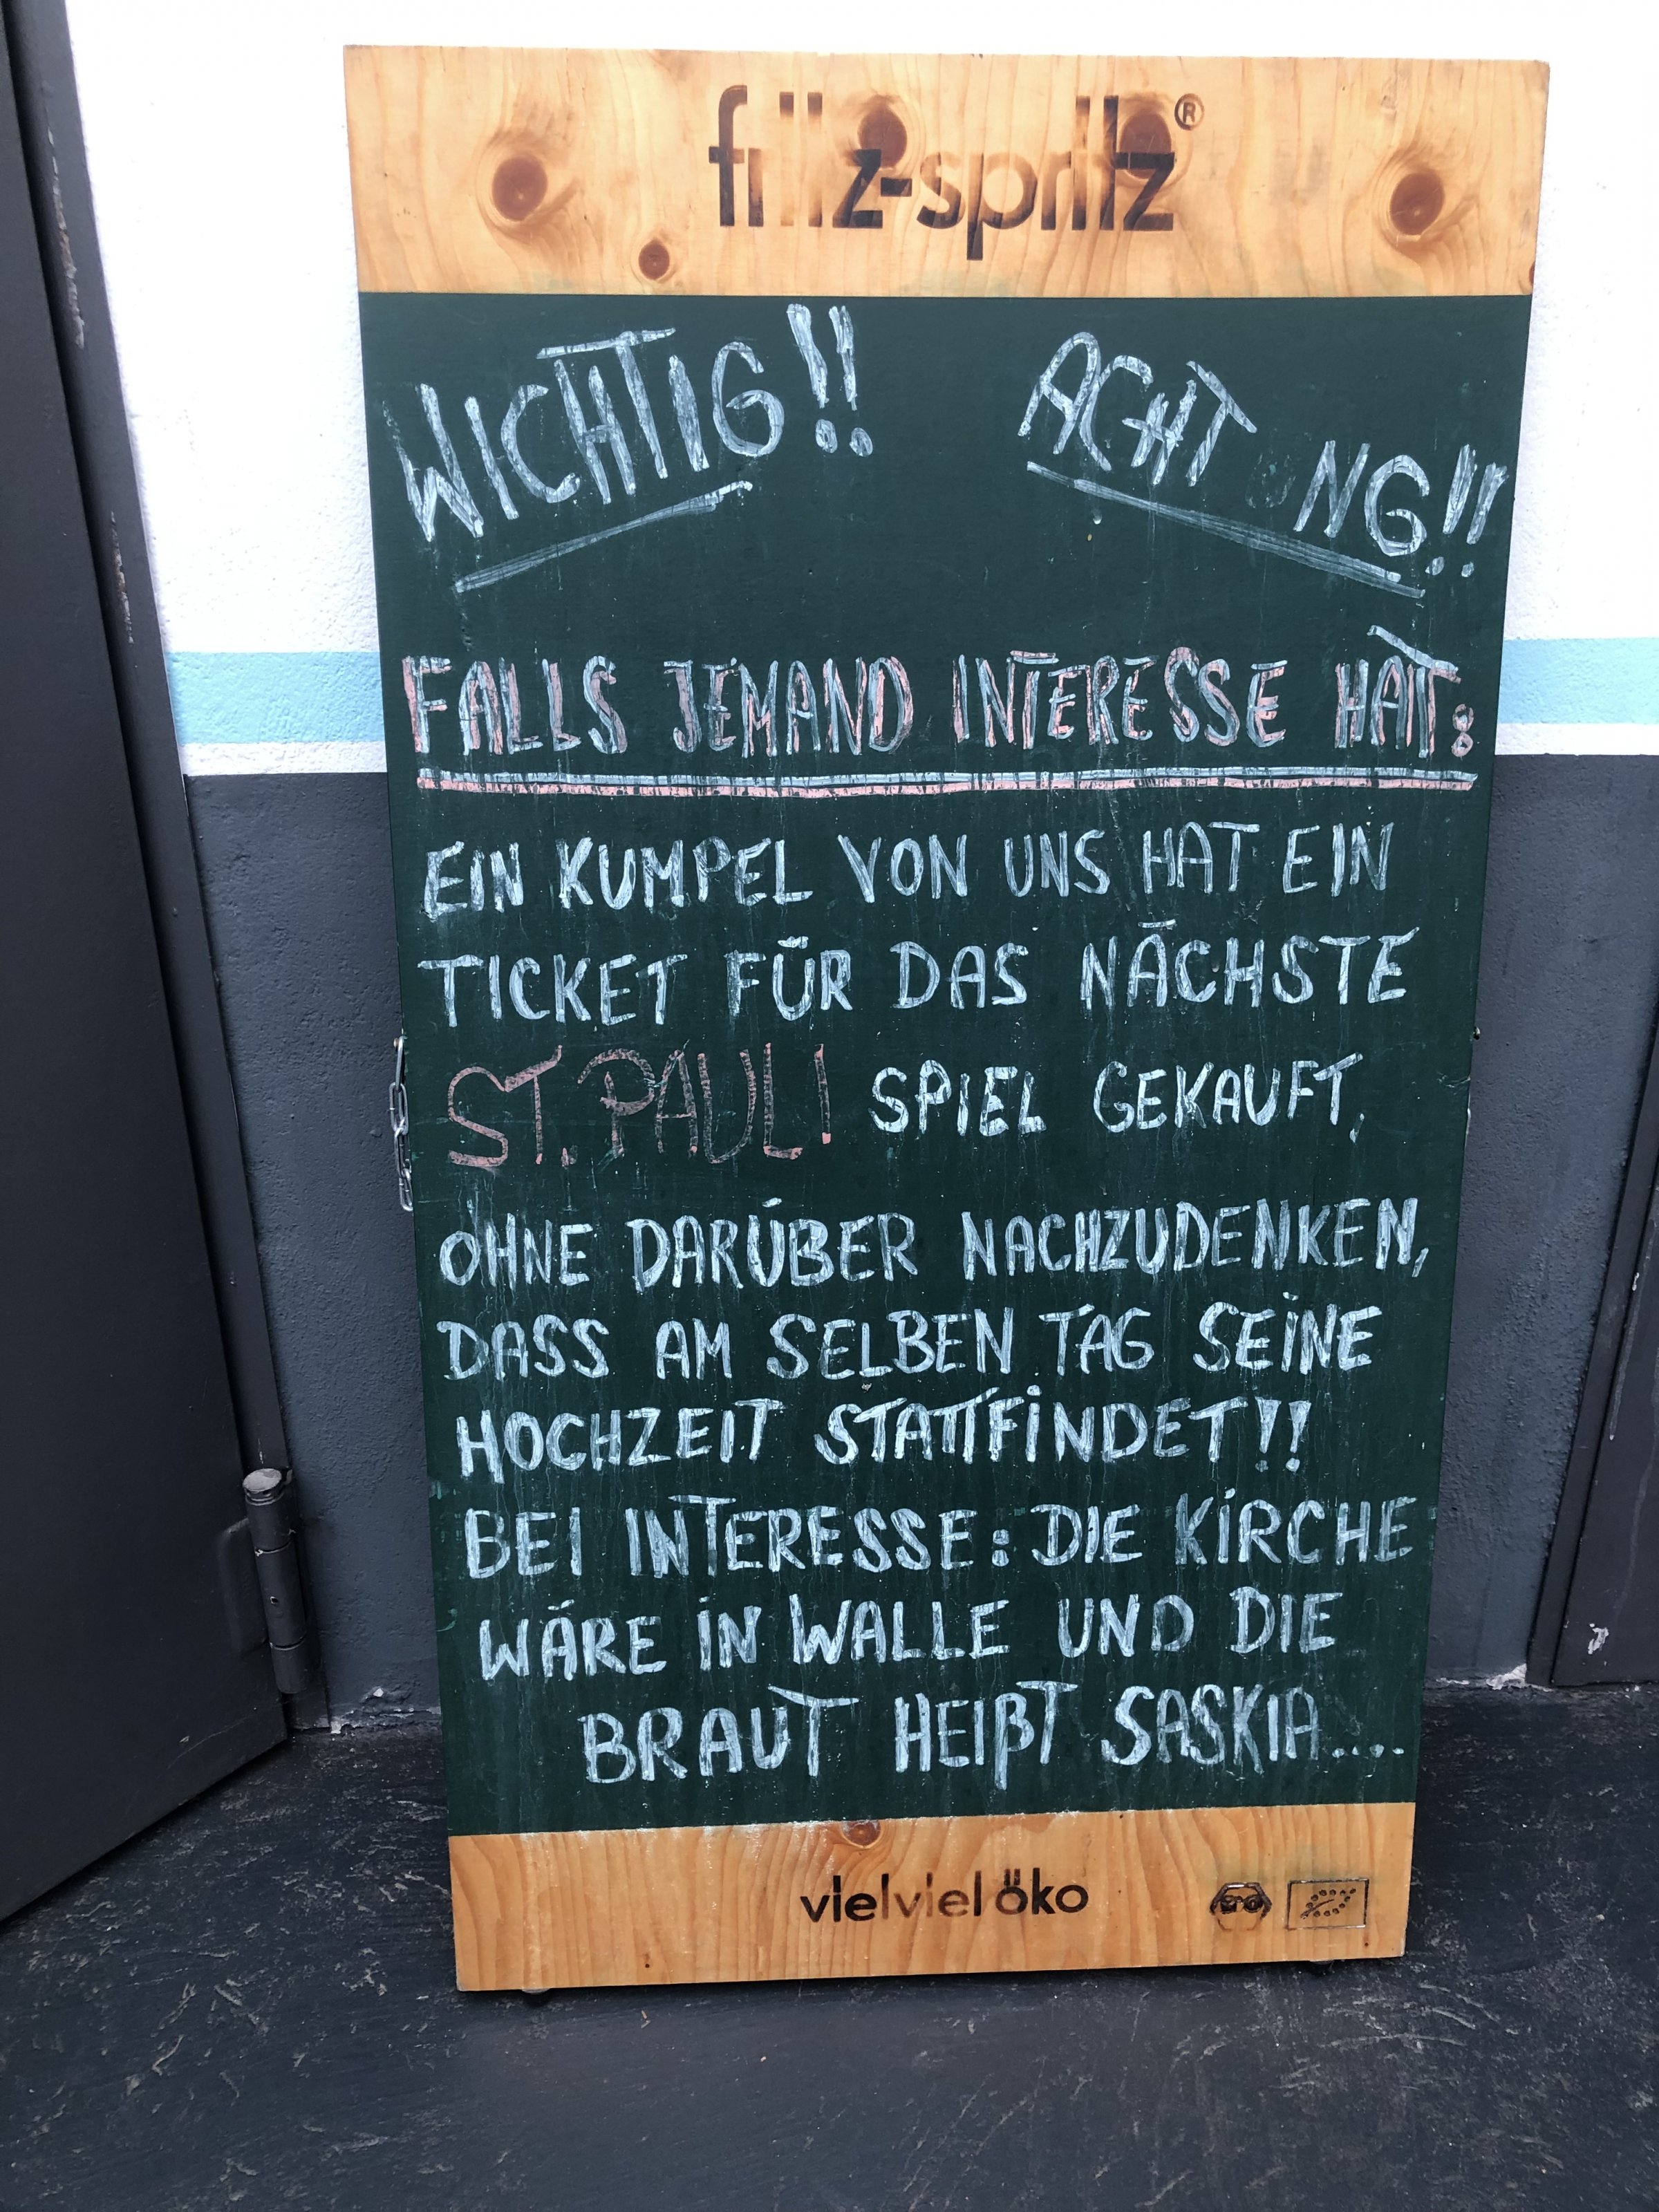 fritz-spritz®
WICHTIG!! ACHTUNG!!
FALLS JEMAND INTERESSE HAT:
EIN KUMPEL VON UNS HAT EIN
TICKET FÜR DAS NÄCHSTE
ST. PAULI SPIEL GEKAUFT,
OHNE DARÜBER NACHZUDENKEN,
DASS AM SELBEN TAG SEINE
HOCHZEIT STATTFINDET!!
BEI INTERESSE: DIE KIRCHE
WÄRE IN WALLE UND DIE
BRAUT HEIßT SASKIA....
vielviel öko